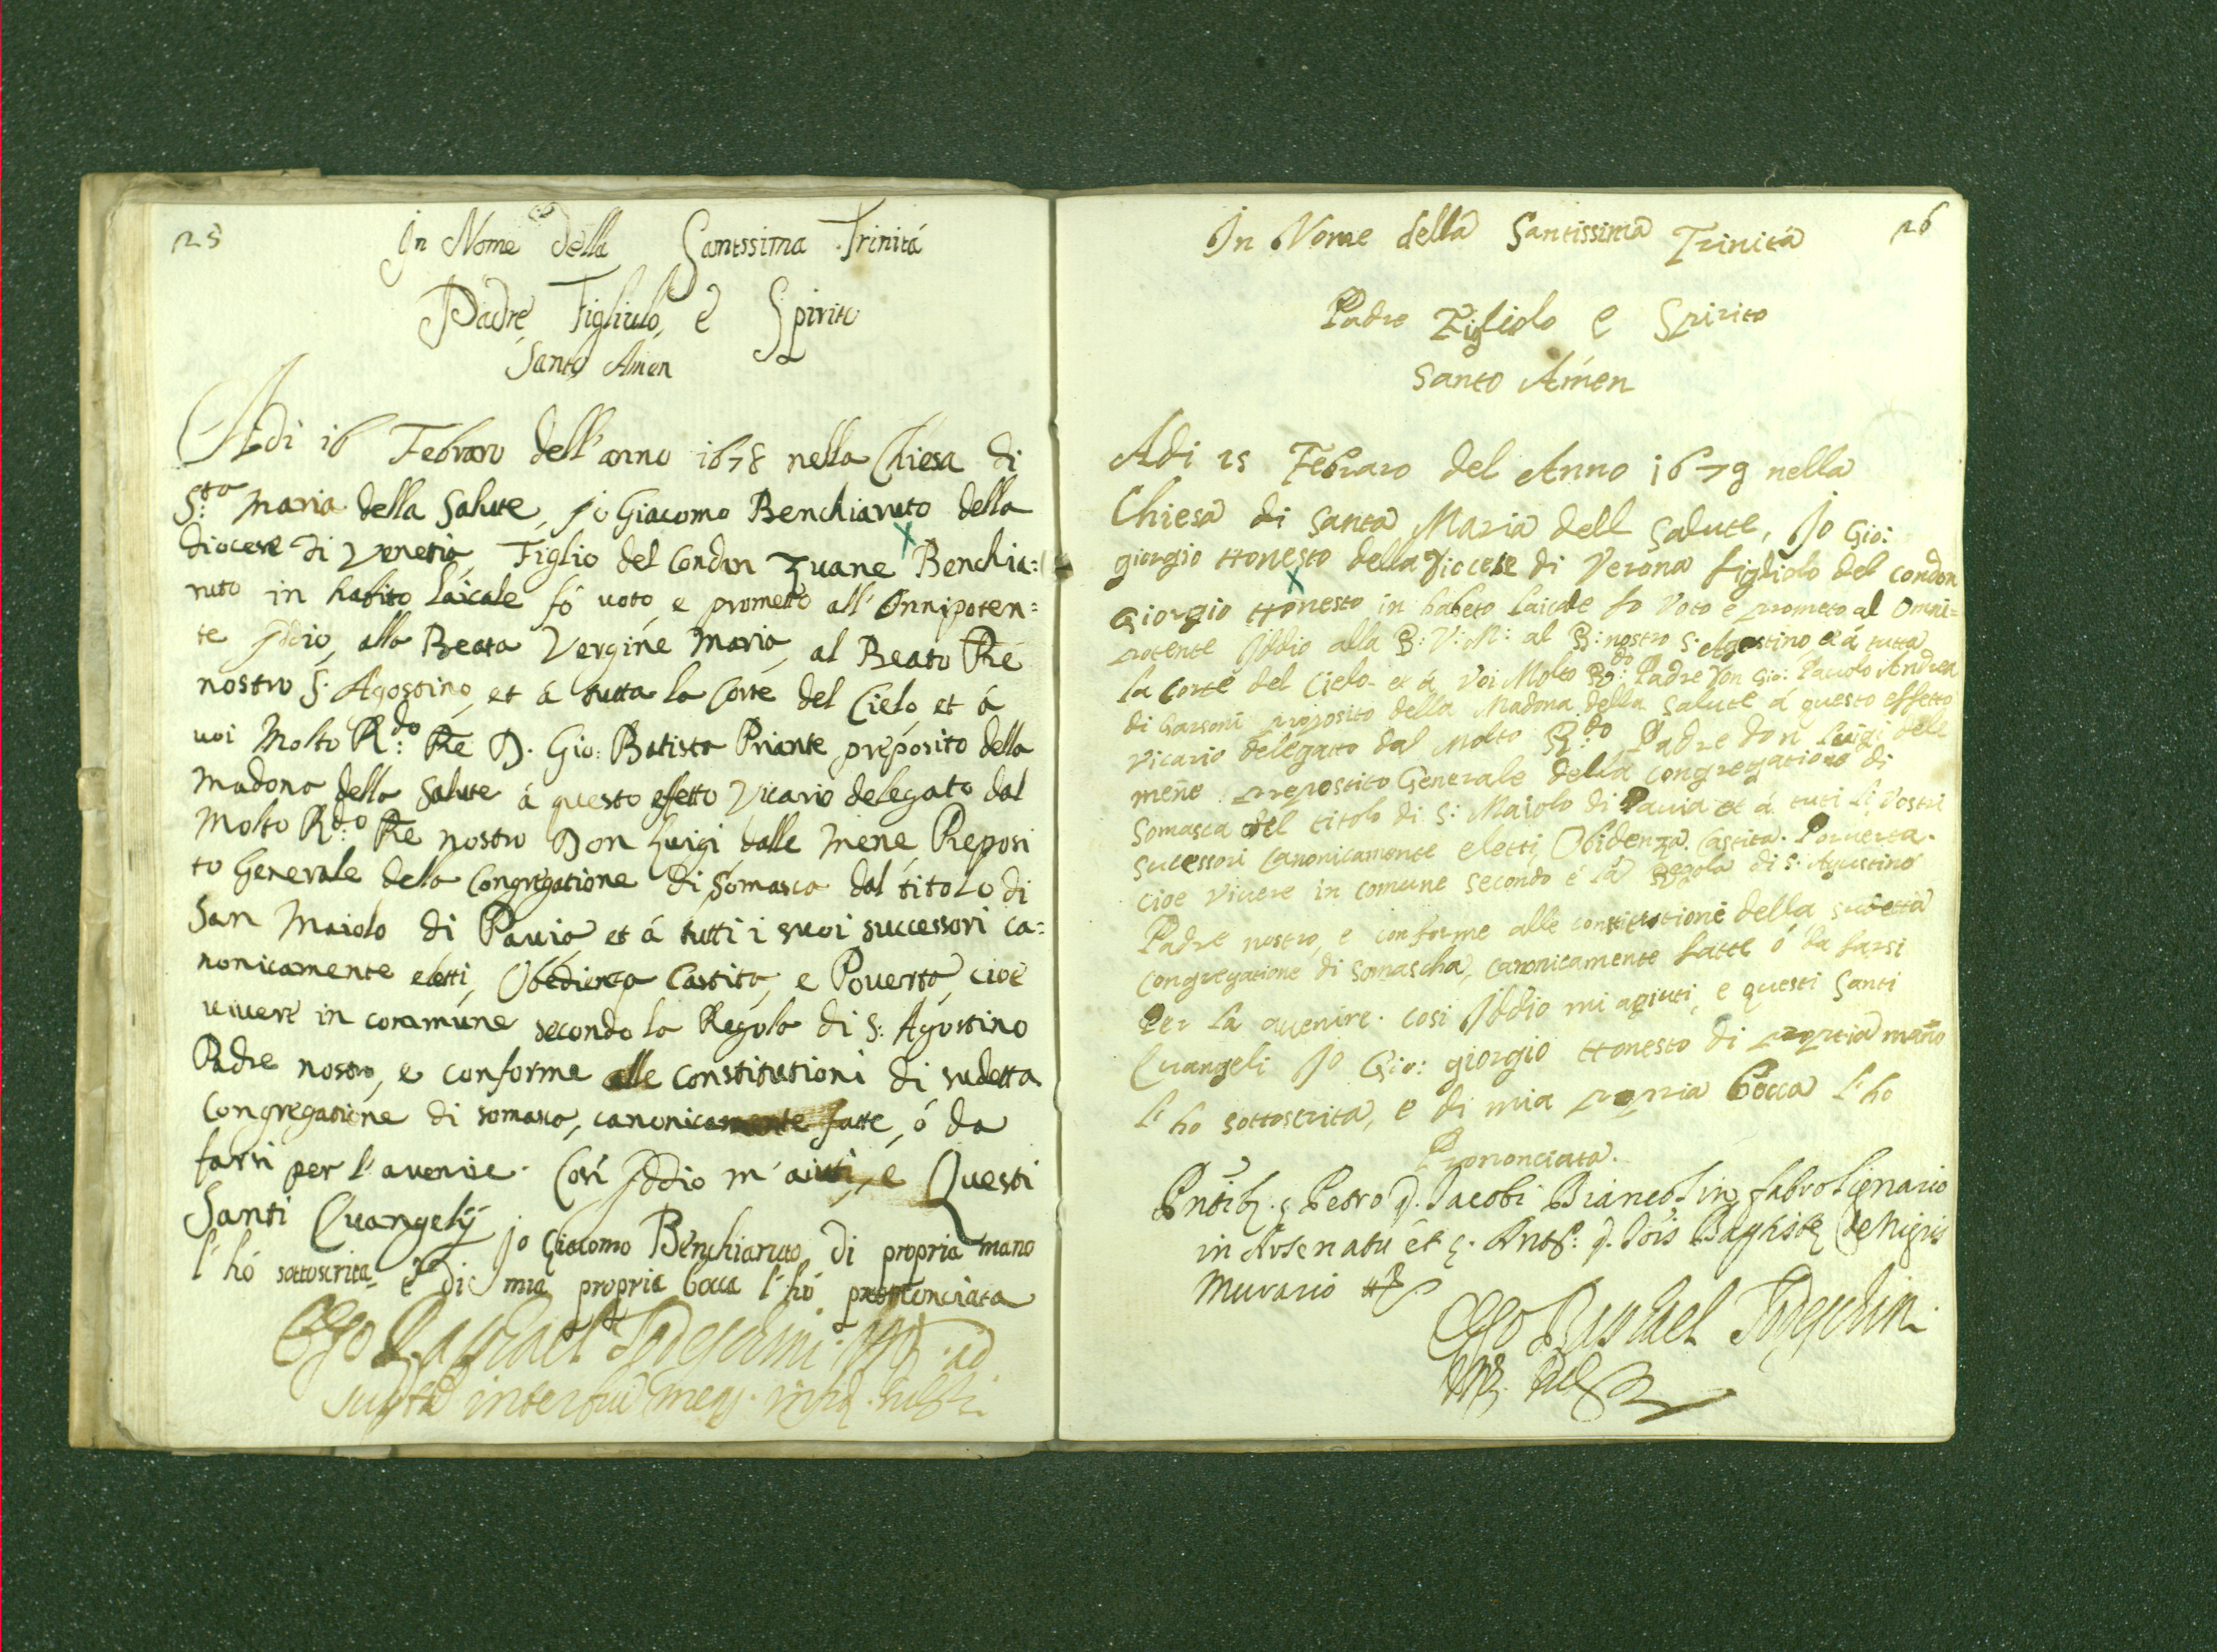 125
In Nome della Santissima Trinitá
Padre, Figliulo, è Spirito
Santo Amen
Adi 16 Febraro dell'anno 1678 nella Chiesa di
S:ta Maria della Salute, jo Giacomo Benchiaruto della
diocese di Venetia, Figlio del Condan Zuane Benchia:
ruto in habito laicale fó uoto, e prometto all' Onnipoten:
te Jddio, alla Beata Vergine Maria, al Beato P̃re
nostro S: Agostino, et á tutta la Corte del Cielo, et á
uoi Molto R:do P̃re D. Gio: Batista Priante preposito della
Madona della Salute á questo effetto Vicario delegato dal
Molto R:do P̃re nostro Don Luigi dalle Mene Preposi
to Generale della Congregatione di Somasca dal titolo di
San Maiolo di Pauia et á tutti i suoi successori ca:
nonicamente eletti, Obedienza Castita, e Pouertá, cioè
uiuere in commune secondo la Regola di S: Agostino
Padre nostro, e conforme alle constitutioni di sudetta
Congregatione di somasca, canonicamente fatte, ó da
farsi per l'auenire. Cosí Jddio m'aiuti, e Questi
Santi Euangelij Jo Giacomo Benchiaruto di propria mano
l' hó sottoscrita è di mia propria bocca l'hó prononciata
Ego Raphael Todeschini
126
In Nome della Santissima Trinita
Padre Figliolo e Spirito
Santo Amen
Adi 15 Febraro del Anno 1679 nella
Chiesa di Santa Maria dell Salute, Jo Gio:
giorgio Honesto della Diocese di Verona figliolo del condon
Giorgio Honesto in habeto laicale fo Voto e prometo al Omni=
potente Iddio alla B: V: M: al B: nostro S: Agostino et á tutta
la Corte del Cielo et á Voi Molto R:do Padre Don Gio: Pauolo Andrea
di Garsoni proposito della Madona della Salute á questo effetto
Vicario delegatto dal Molto R:do Padre don Luigi dele
mene prepostito Generale della Congregatione di
Somasca del titolo di S: Maiolo di Pauia et á tuti li Vostri
sucessori Canonicamente eletti, Obidenza Castita. Pouerta.
cioe viuere in comune secondo é lá Regola di S: Agustino
Padre nostro, e conforme alle constitutione della sudetta
Congregatione di somascha, canonicamente fatte ó da farsi
Per la auenire. cosi Iddio mi agiuti, e questi Santi
Euangeli Jo Gio: giorgio Honesto di propria mano
l' ho sottoscrita, e di mia propria bocca l' ho
Prononciata.
Petro Jacobi Fabro lignario
in Arsenatu et
Murario
Ego Raphael Todeschin